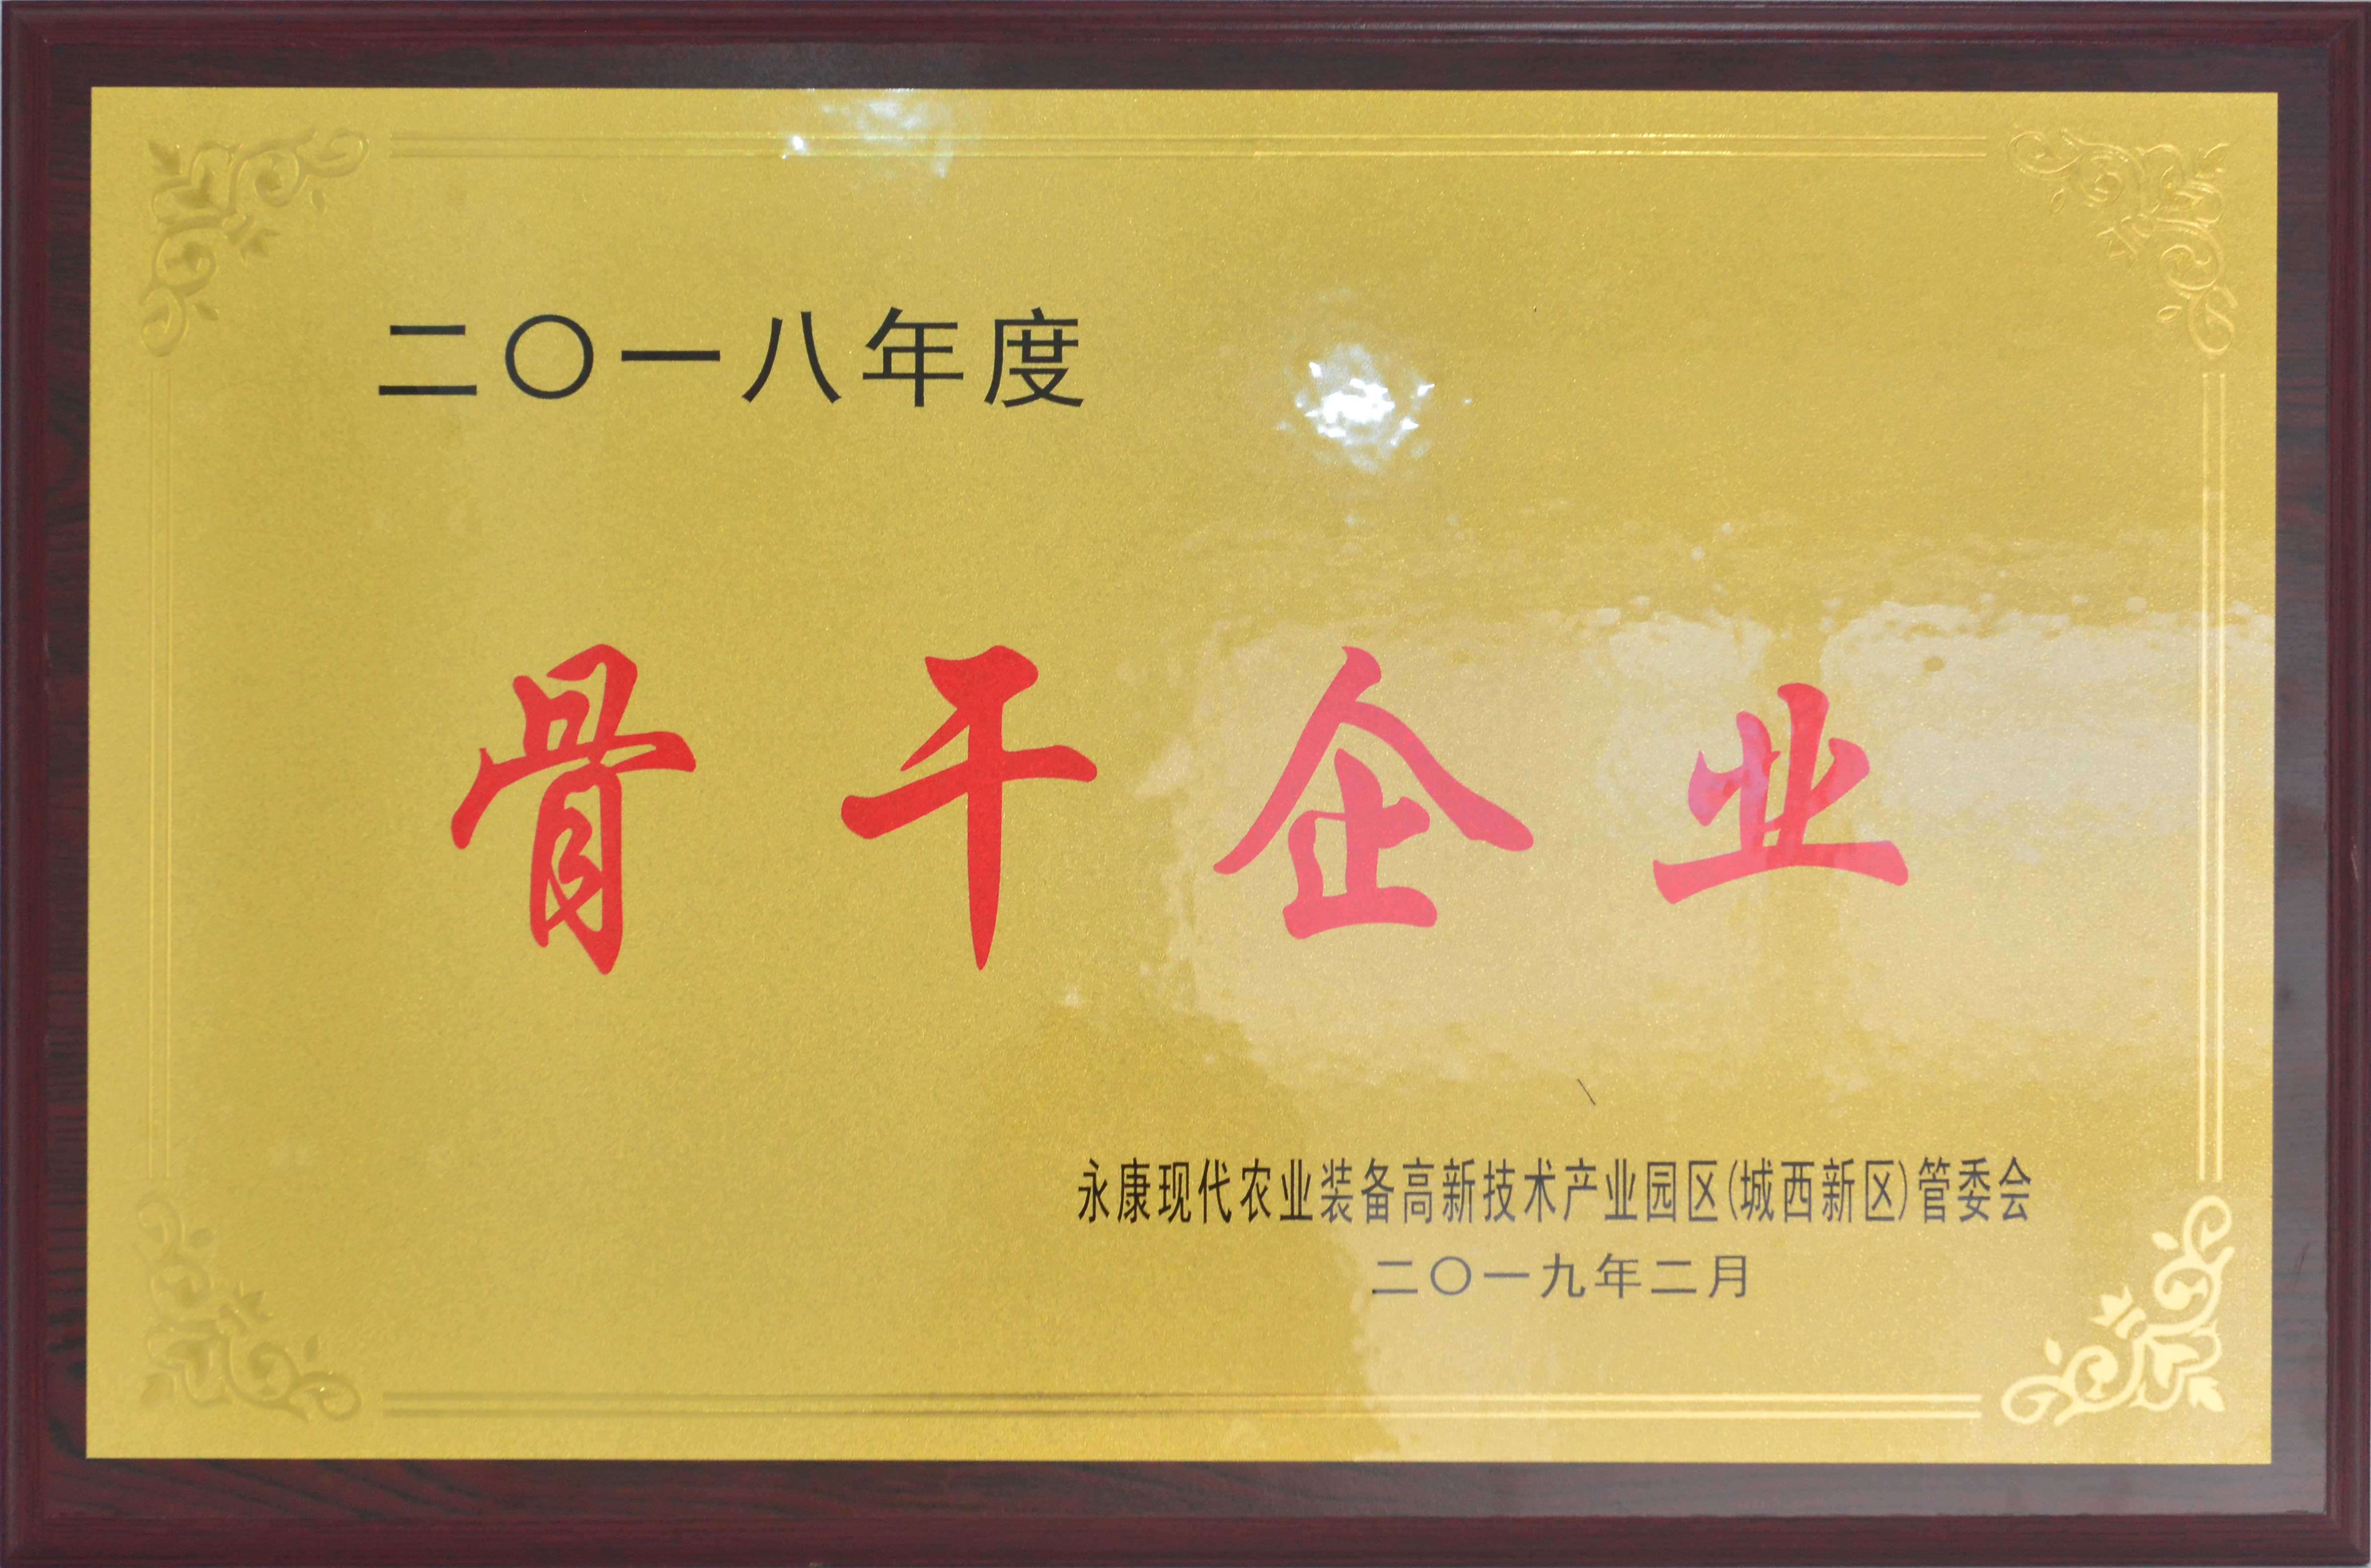 二〇一八年度
骨干企业
永康现代农业装备高新技术产业园区(城西新区)管委会
二〇一九年二月